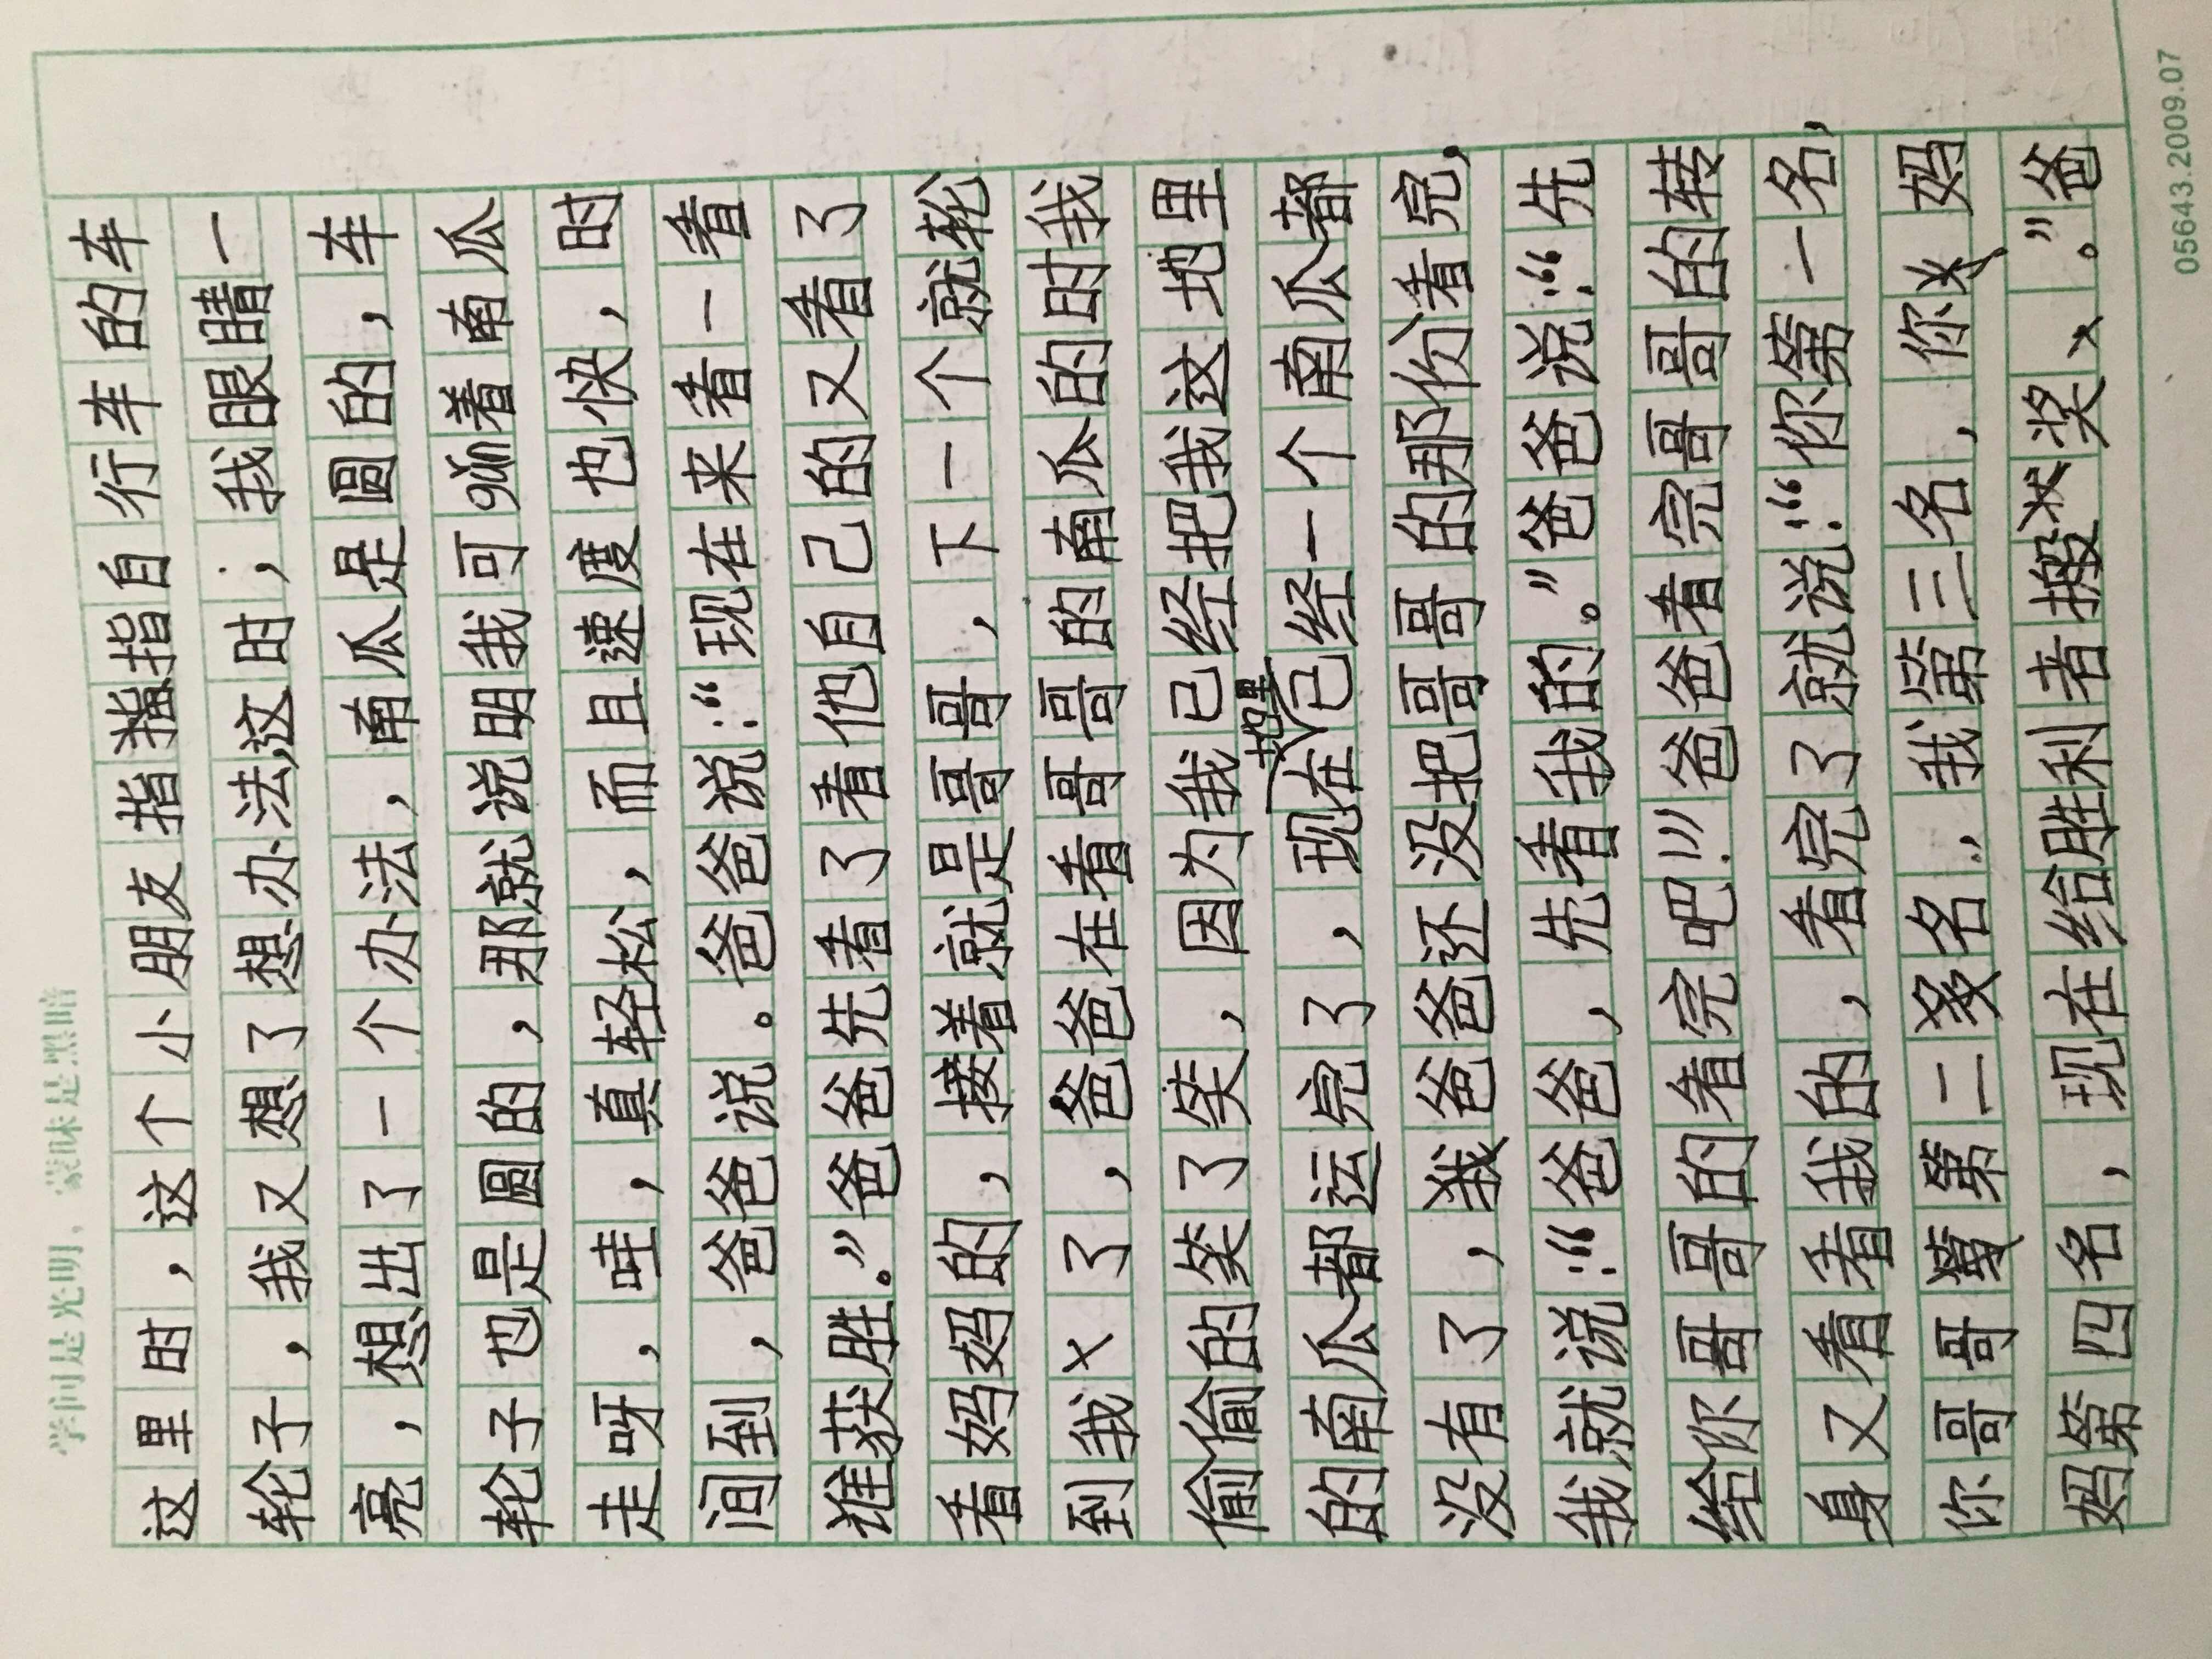 学问是光明，蒙昧是黑暗
这里时，这个小朋友指指指自行车的车
轮子，我又想了想办法，这时；我眼睛一
亮，想出了一个办法，南瓜是圆的，车
轮子也是圆的，那就说明我可gǔn着南瓜
走呀，哇，真轻松，而且速度也快，时
间到，爸爸说。爸爸说：“现在来看一看
谁获胜。”爸爸先看了看他自己的又看了
看妈妈的，接着就是哥哥，下一个就轮
到我了，爸爸在看哥哥的南瓜的时我
偷偷的笑了笑，因为我已经把我这地里
的南瓜都运完了，现在地里已经一个南瓜都
没有了，我爸爸还没把哥哥的那份看完，
我就说：“爸爸，先看我的。”爸爸说：“先
给你哥哥的看完吧！”爸爸看完哥哥的转
身又看看我的，看完了就说：“你第一名，
你哥哥第二名，我第三名，你妈
妈第四名，现在给胜利者搬奖。”爸
05643.2009.07